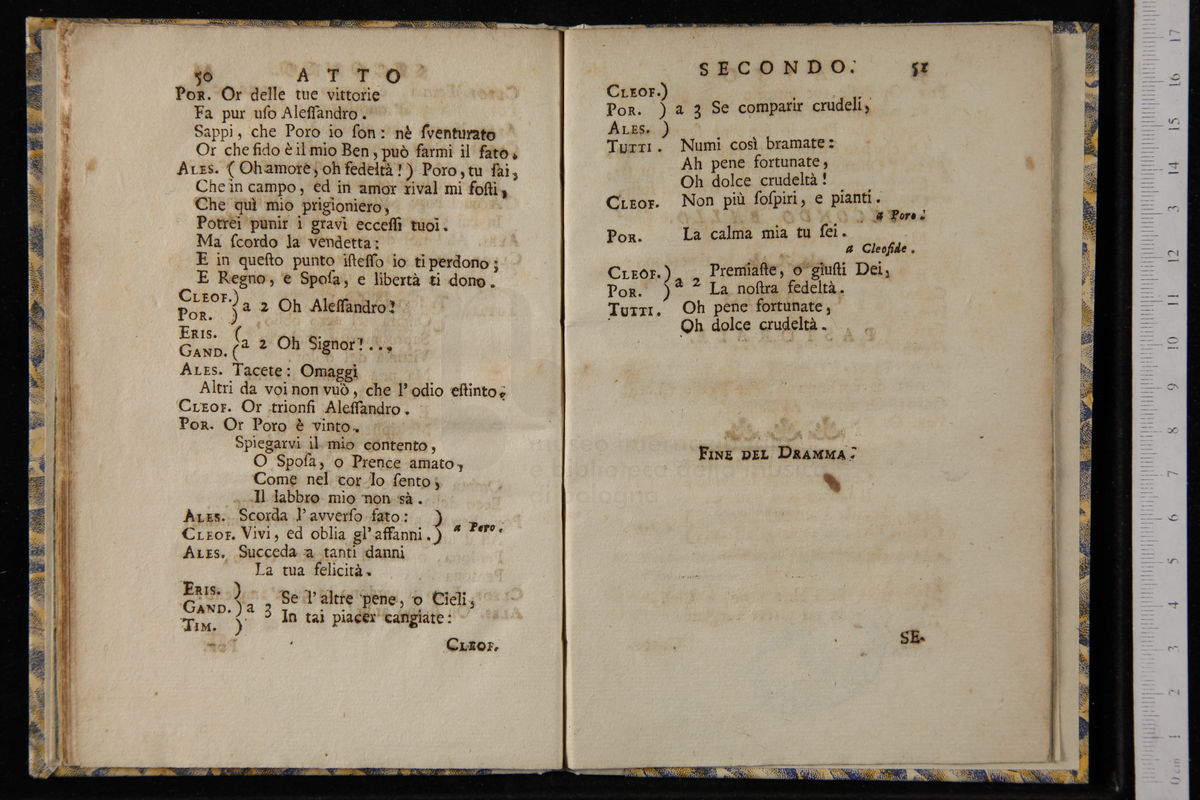 50 ATTO
POR. Or delle tue vittorie
Fa pur uſo Aleſſandro.
Sappi, che Poro io ſon: nè ſventurato
Or che fido è il mio Ben, può farmi il fato.
ALES. (Oh amore, oh fedeltà!) Poro, tu ſai,
Che in campo, ed in amor rival mi foſti,
Che quì mio prigioniero,
Potrei punir i gravi ecceſſi tuoi.
Ma ſcordo la vendetta:
E in queſto punto iſteſſo io ti perdono;
E Regno, e Spoſa, e libertà ti dono.
CLEOF.)
POR. ) a 2 Oh Aleſſandro!
ERIS. (
GAND. ( a 2 Oh Signor!...
ALES. Tacete: Omaggi
Altri da voi non vuò, che l'odio eſtinto.
CLEOF. Or trionfi Aleſſandro.
POR. Or Poro è vinto.
Spiegarvi il mio contento,
O Spoſa, o Prence amato,
Come nel cor lo ſento,
Il labbro mio non sà.
ALES. Scorda l'avverſo fato: )
CLEOF. Vivi, ed oblia gl'affanni.) a Poro.
ALES. Succeda a tanti danni
La tua felicità.
ERIS. )
GAND. ) a 3 Se l'altre pene, o Cieli,
TIM. ) In tai piacer cangiate:
CLEOF.
SECONDO. 51
CLEOF.)
POR. ) a 3 Se comparir crudeli,
ALES. )
TUTTI. Numi così bramate:
Ah pene fortunate,
Oh dolce crudeltà!
CLEOF. Non più ſoſpiri, e pianti.
a Poro.
POR. La calma mia tu ſei.
a Cleofide.
CLEOF.) a 2 Premiaſte, o giuſti Dei,
POR. ) La noſtra fedeltà.
TUTTI. Oh pene fortunate,
Oh dolce crudeltà.
FINE DEL DRAMMA.
SE-